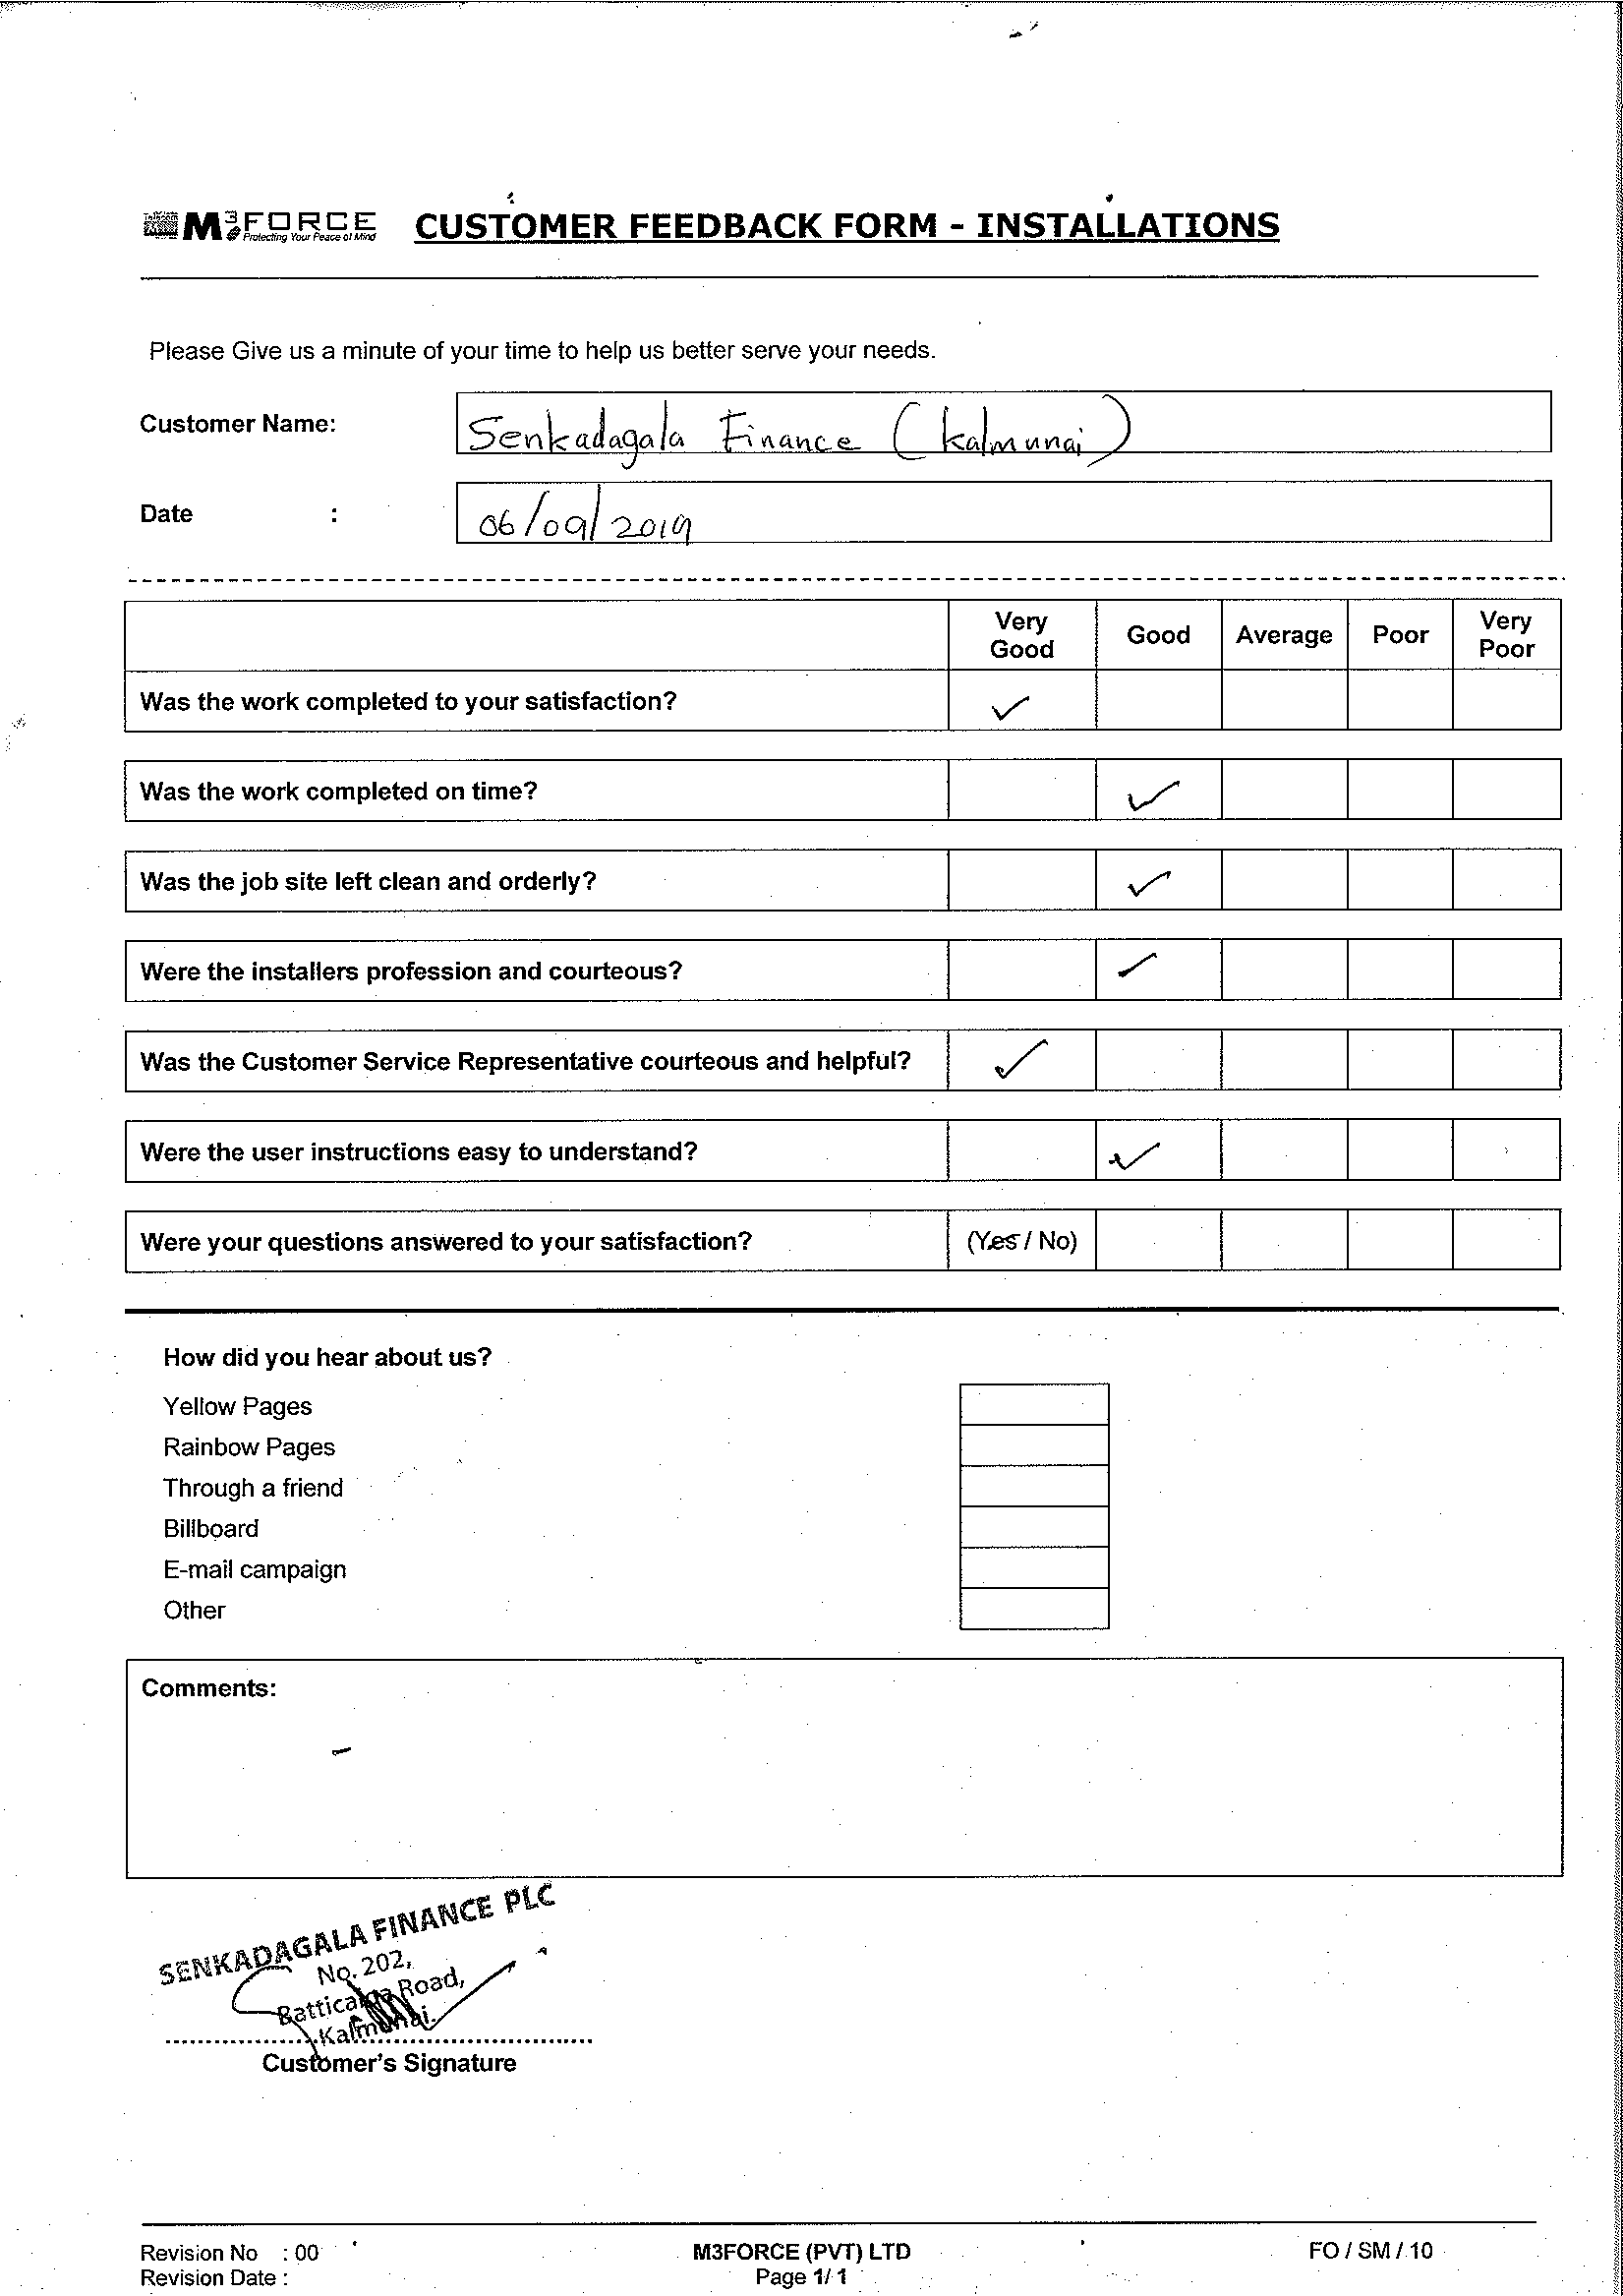 M3FORCE CUSTOMER FEEDBACK FORM - INSTALLATIONS
Protecting Your Peace of Mind
Please Give us a minute of your time to help us better serve your needs.
Customer Name: Senkadagala Finance (Kalmunai)
Date : 06/09/2019
Very Good Good Average Poor Very Poor
Was the work completed to your satisfaction? ✓
Was the work completed on time? ✓
Was the job site left clean and orderly? ✓
Were the installers profession and courteous? ✓
Was the Customer Service Representative courteous and helpful? ✓
Were the user instructions easy to understand? ✓
Were your questions answered to your satisfaction? (Yes / No)
How did you hear about us?
Yellow Pages
Rainbow Pages
Through a friend
Billboard
E-mail campaign
Other
Comments:
-
SENKADAGALA FINANCE PLC
No. 202,
Batticaloa Road,
Kalmunai.
Customer's Signature
Revision No : 00 M3FORCE (PVT) LTD FO / SM / 10
Revision Date : Page 1/ 1